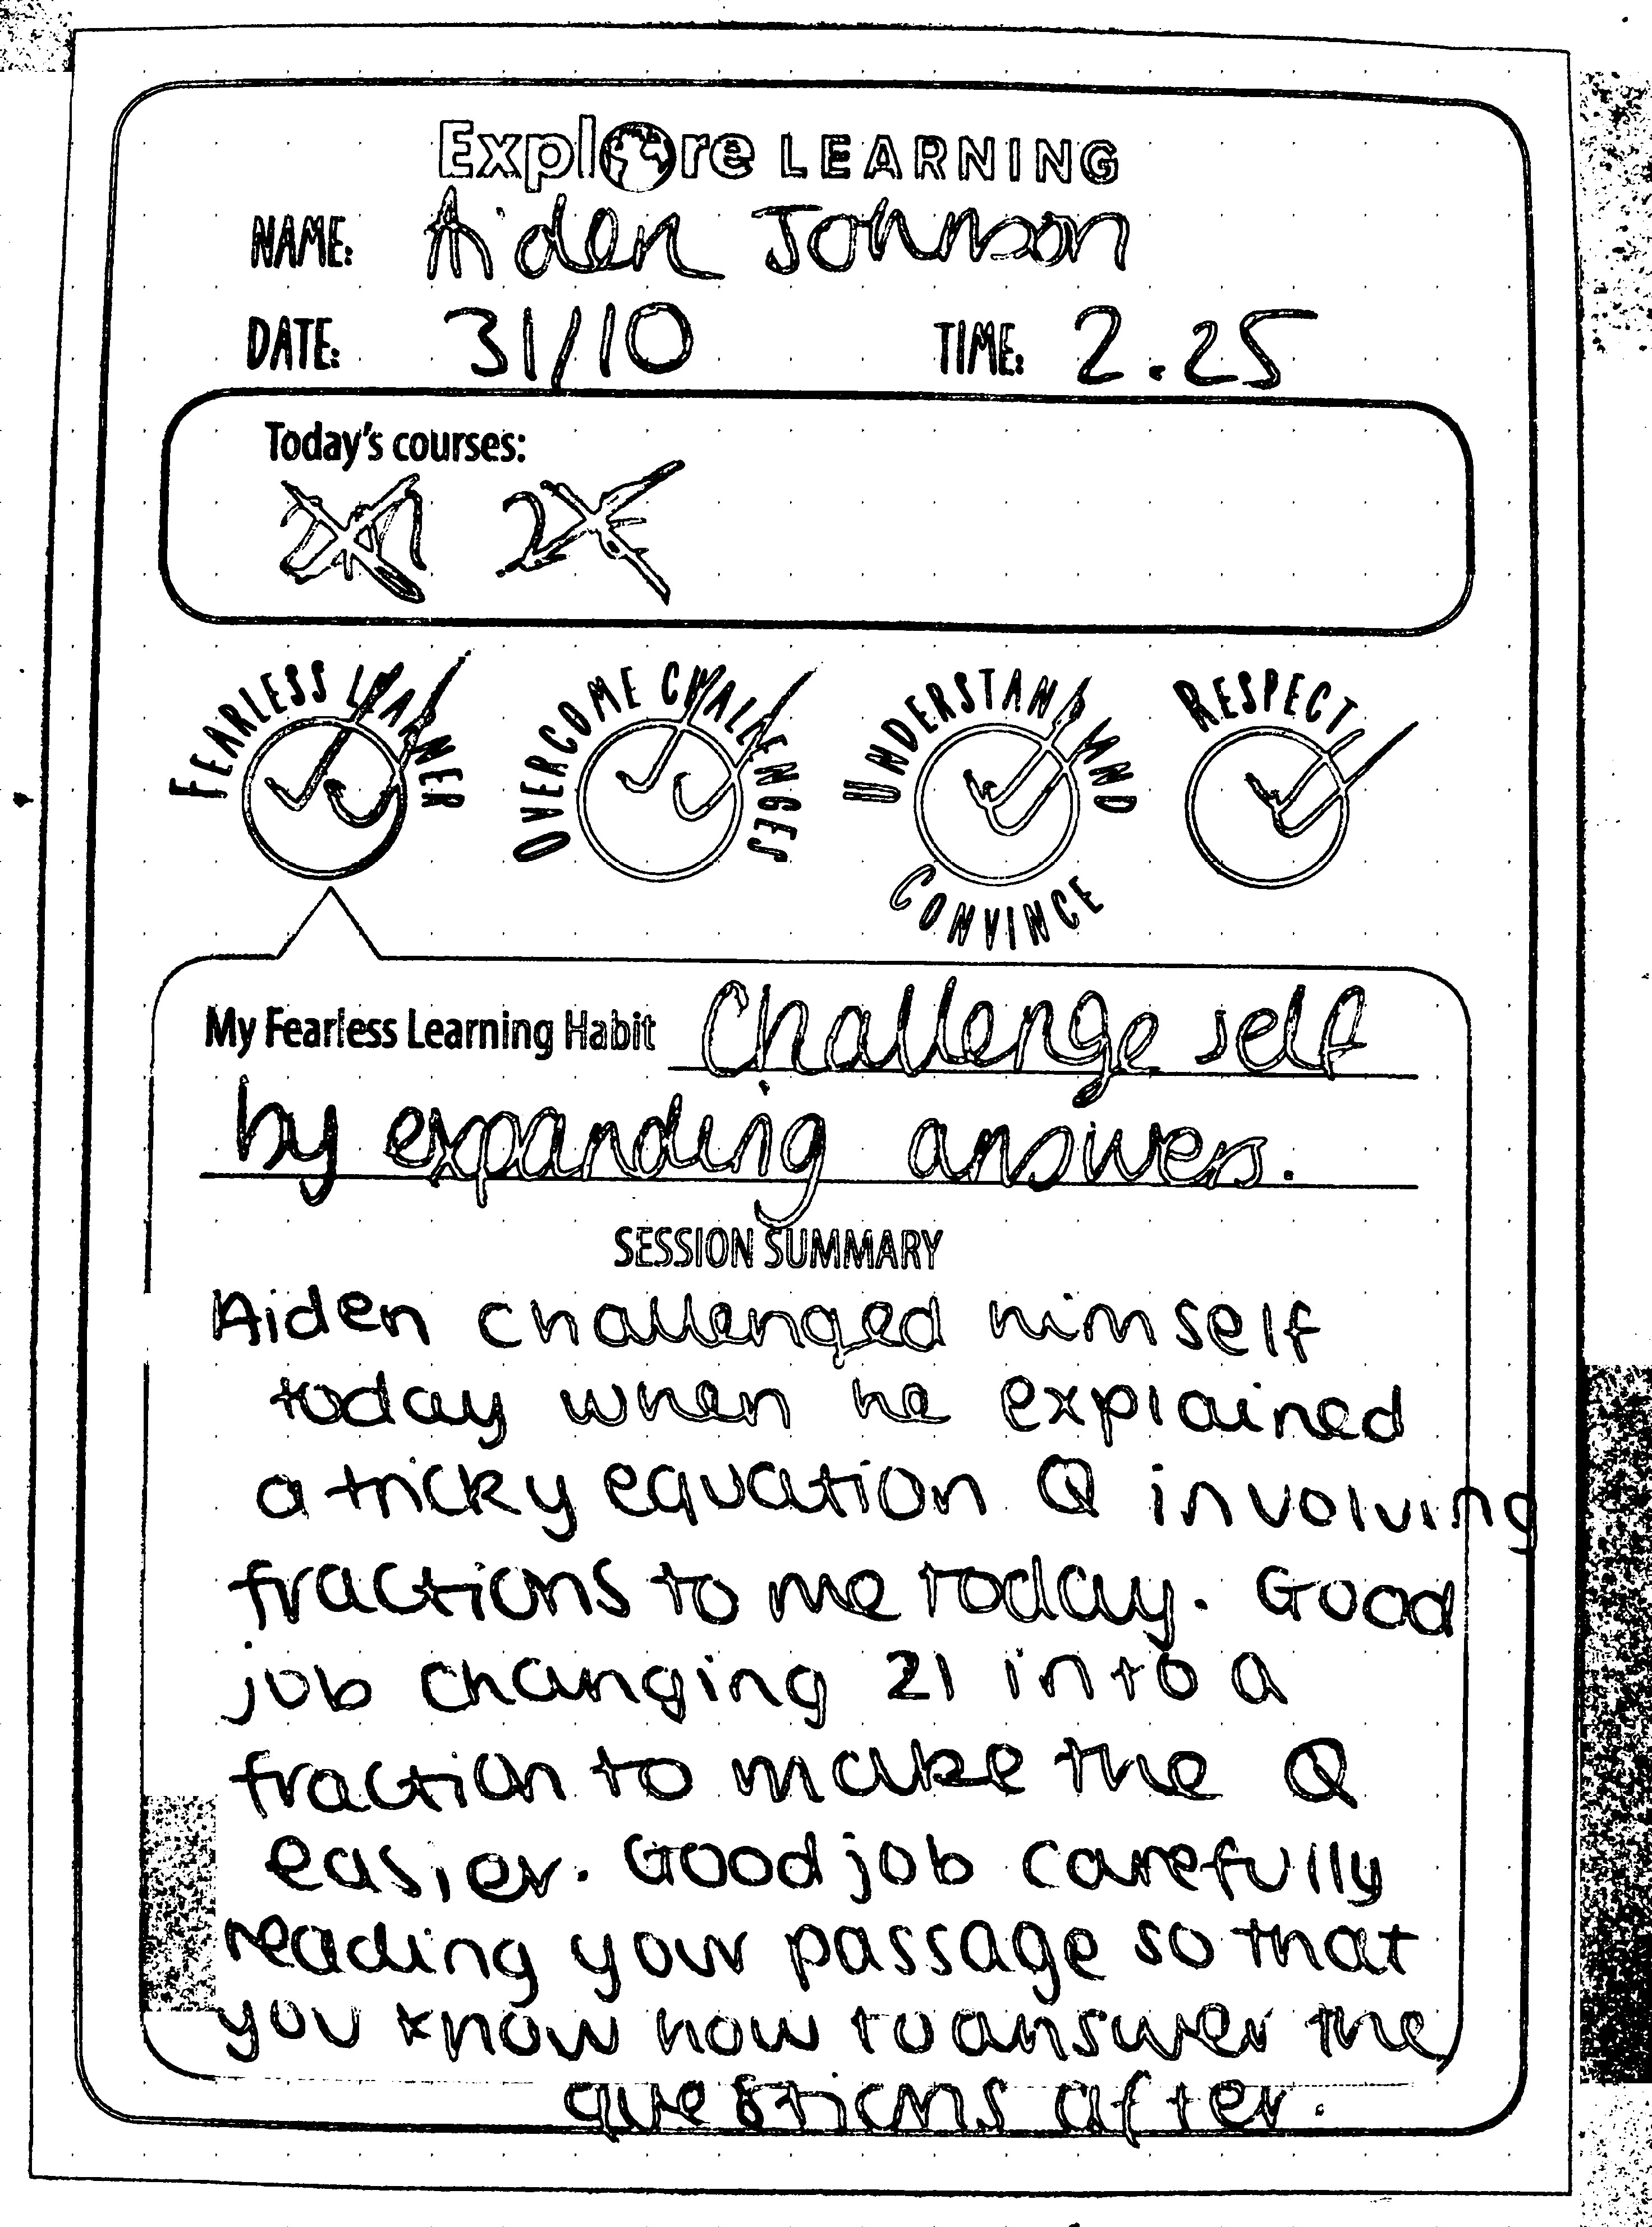 Explore LEARNING
NAME: Aiden Johnson
DATE: 31/10 TIME: 2.25
Today's courses:
FEARLESS LEARNER OVERCOME CHALLENGES UNDERSTAND AND CONVINCE RESPECT
My Fearless Learning Habit Challenge self
by expanding answers.
SESSION SUMMARY
Aiden challenged himself
today when he explained
a tricky equation Q involving
fractions to me today. Good
job changing 21 into a
fraction to make the Q
easier. Good job carefully
reading your passage so that
you know how to answer the
questions after.